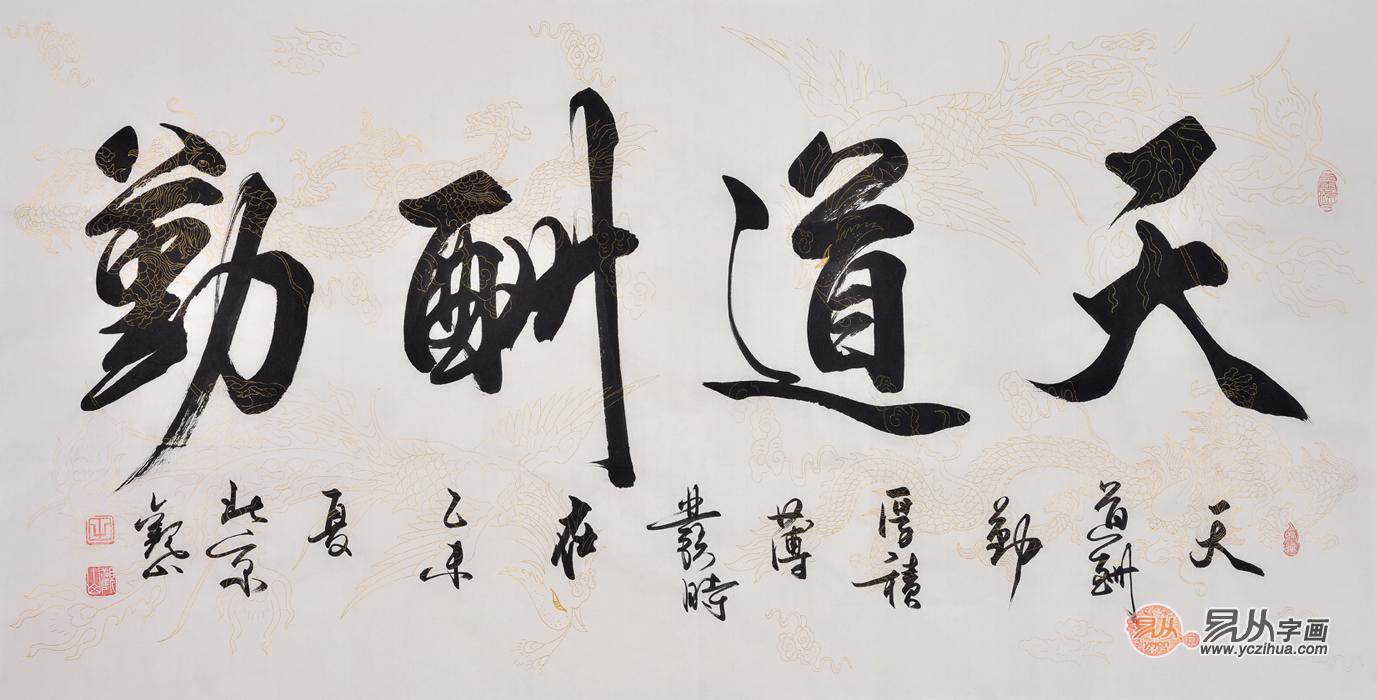 天道酬勤
天道酬勤厚積薄發時在乙未夏北京觀山
易从字画
www.yczihua.com
yejon